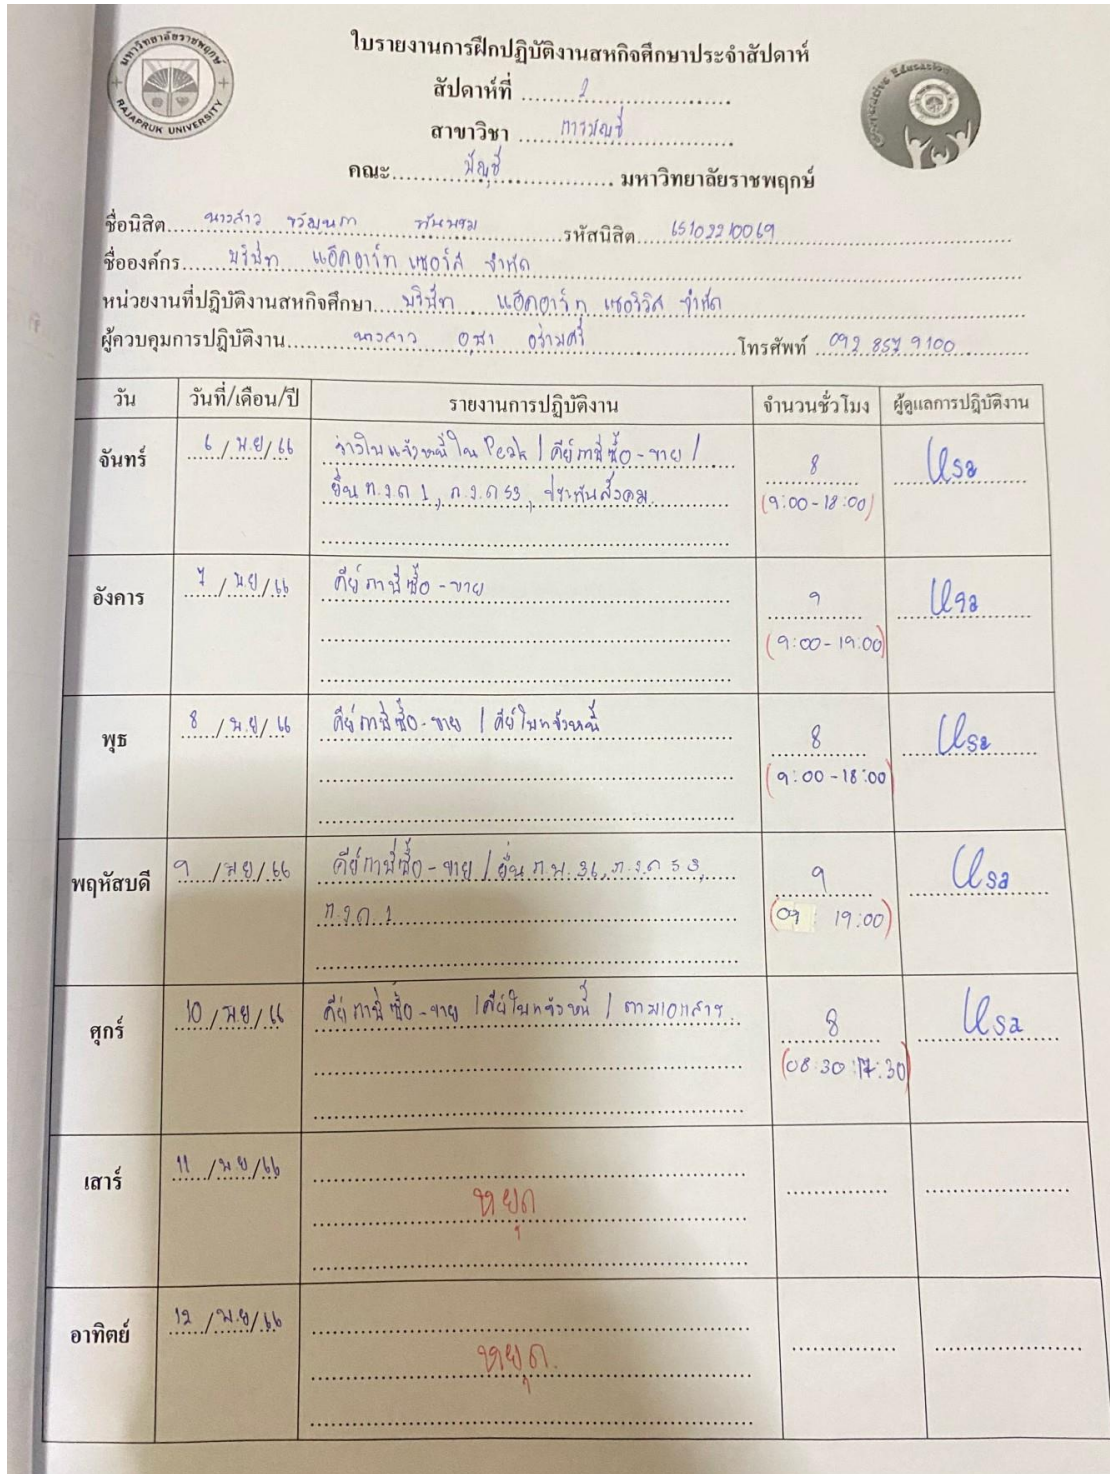 มหาวิทยาลัยราชพฤกษ์
RAJAPRUK UNIVERSITY
ใบรายงานการฝึกปฏิบัติงานสหกิจศึกษาประจำสัปดาห์
สัปดาห์ที่ 2
สาขาวิชา การบัญชี
คณะ บัญชี มหาวิทยาลัยราชพฤกษ์
Education
ชื่อนิสิต นางสาว รหัสนิสิต 65102210069
ชื่อองค์กร บริษัท จำกัด
หน่วยงานที่ปฏิบัติงานสหกิจศึกษา บริษัท จำกัด
ผู้ควบคุมการปฏิบัติงาน นางสาว อุสา โทรศัพท์ 092 857 9100
วัน วันที่/เดือน/ปี รายงานการปฏิบัติงาน จำนวนชั่วโมง ผู้ดูแลการปฏิบัติงาน
จันทร์ 6 / พ.ย / 66 ใบแจ้งหนี้ใน Peak / คีย์ภาษีซื้อ - ขาย / 8 Usa
ยื่น ภ.ง.ด 1, ภ.ง.ด 53, ประกันสังคม (9:00-18:00)
อังคาร 7 / พ.ย / 66 คีย์ภาษีซื้อ - ขาย 9 Usa
(9:00-19:00)
พุธ 8 / พ.ย / 66 คีย์ภาษีซื้อ - ขาย / คีย์ใบแจ้งหนี้ 8 Usa
(9:00-18:00)
พฤหัสบดี 9 / พ.ย / 66 คีย์ภาษีซื้อ - ขาย / ยื่น ภ.พ. 36, ภ.ง.ด 53, 9 Usa
ภ.ง.ด. 1 (09 19:00)
ศุกร์ 10 / พ.ย / 66 คีย์ภาษีซื้อ - ขาย / คีย์ใบแจ้งหนี้ / ตามเอกสาร 8 Usa
(08:30:17:30)
เสาร์ 11 / พ.ย / 66
หยุด
อาทิตย์ 12 / พ.ย / 66
หยุด.